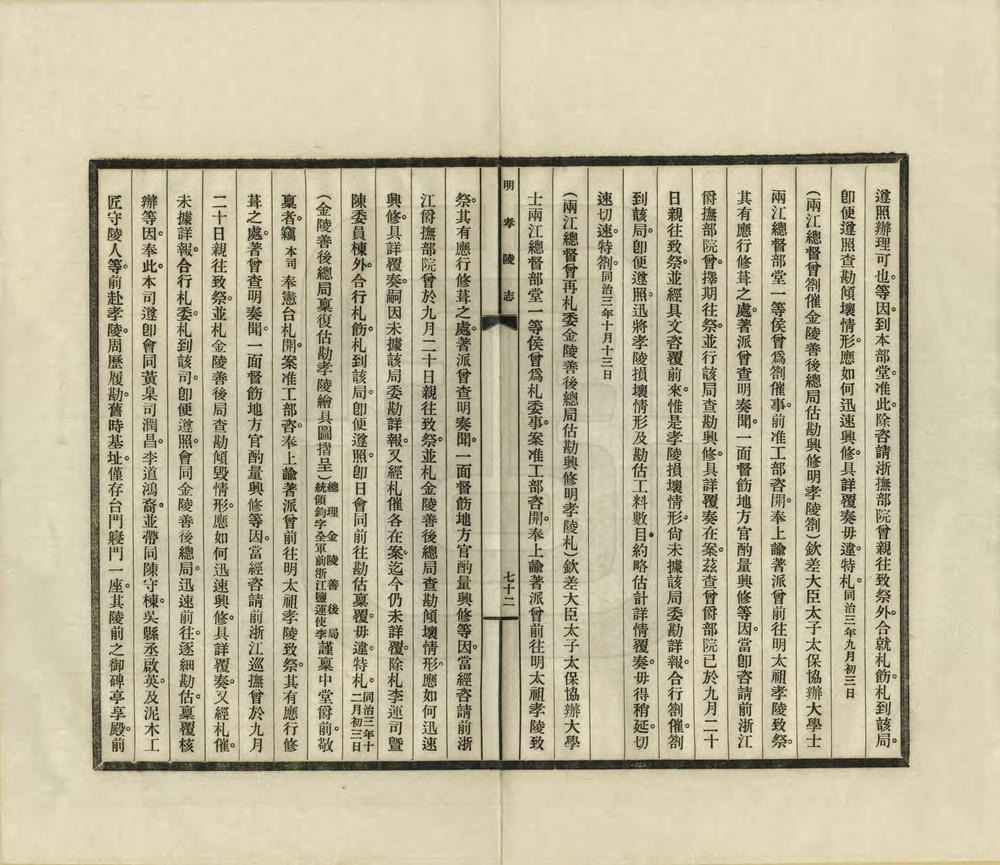 遵照辦理可也。等因。到本部堂。准此。除咨請浙撫部院曾親往致祭外。合就札飭。札到該局。
卽便遵照。查勘傾壞情形。應如何迅速興修。具詳覆奏。毋違。特札。同治三年九月初三日
(兩江總督曾劄催金陵善後總局估勘興修明孝陵劄)欽差大臣太子太保協辦大學士
兩江總督部堂一等侯曾爲劄催事。前准工部咨開。奉上諭著派曾前往明太祖孝陵致祭。
其有應行修葺之處。著曾查明奏聞。一面督飭地方官酌量興修等因。當卽咨請前浙江
爵撫部院曾。擇期往祭。並行該局查勘興修。具詳覆奏在案。茲查曾爵部院已於九月二十
日親往致祭。並經具文咨覆前來。惟是孝陵損壞情形。尙未據該局委勘詳報。合行劄催。劄
到該局。卽便遵照。迅將孝陵損壞情形及勘估工料數目。約略估計詳情覆奏。毋得稍延。切
速切速。特劄。同治三年十月十三日
(兩江總督曾再札委金陵善後總局估勘興修明孝陵札)欽差大臣太子太保協辦大學
士兩江總督部堂一等侯曾爲札委事。案准工部咨開。奉上諭著派曾前往明太祖孝陵致
明孝陵志
七十二
祭。其有應行修葺之處。著派曾查明奏聞。一面督飭地方官酌量興修等因。當經咨請前浙
江爵撫部院曾於九月二十日親往致祭。並札金陵善後總局查勘傾壞情形。應如何迅速
興修。具詳覆奏。嗣因未據該局委勘詳報。又經札催各在案。迄今仍未詳覆。除札李運司暨
陳委員棟外。合行札飭。札到該局。卽便遵照。卽日會同前往勘估稟覆。毋違。特札。同治三年十二月初三日
(金陵善後總局稟復估勘孝陵繪具圖摺呈)總理金陵善後局統領鈞字全軍前浙江鹽運使李謹稟中堂爵前。敬
稟者。竊本司奉憲台札開。案准工部咨。奉上諭著派曾前往明太祖孝陵致祭。其有應行修
葺之處。著曾查明奏聞。一面督飭地方官酌量興修等因。當經咨請前浙江巡撫曾於九月
二十日親往致祭。並札金陵善後局查勘傾毀情形。應如何迅速興修。具詳覆奏。又經札催。
未據詳報。合行札委。札到該司。卽便遵照。會同金陵善後總局。迅速前往。逐細勘估。稟覆核
辦等因。奉此。本司遵卽會同黃臬司潤昌。李道鴻裔。並帶同陳守棟。吳縣丞啟英。及泥木工
匠守陵人等。前赴孝陵。周歷履勘。舊時基址。僅存台門寢門一座。其陵前之御碑亭享殿。前